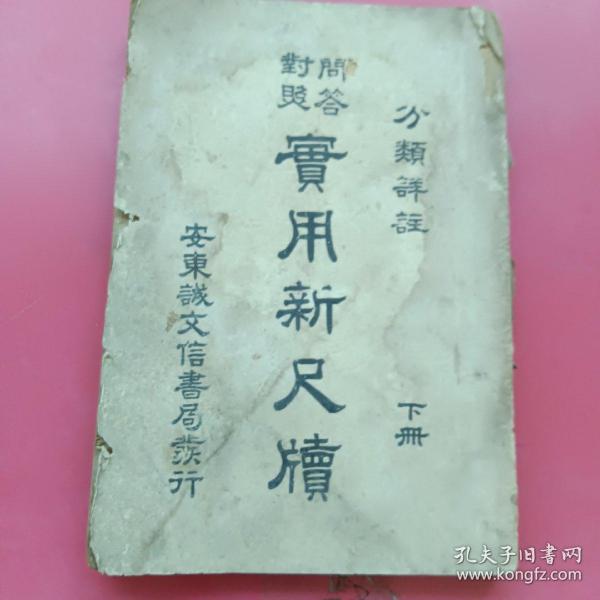 分類詳註
下冊
問答
對照
實用新尺牘
安東誠文信書局發行
孔夫子旧书网
www.kongfz.com